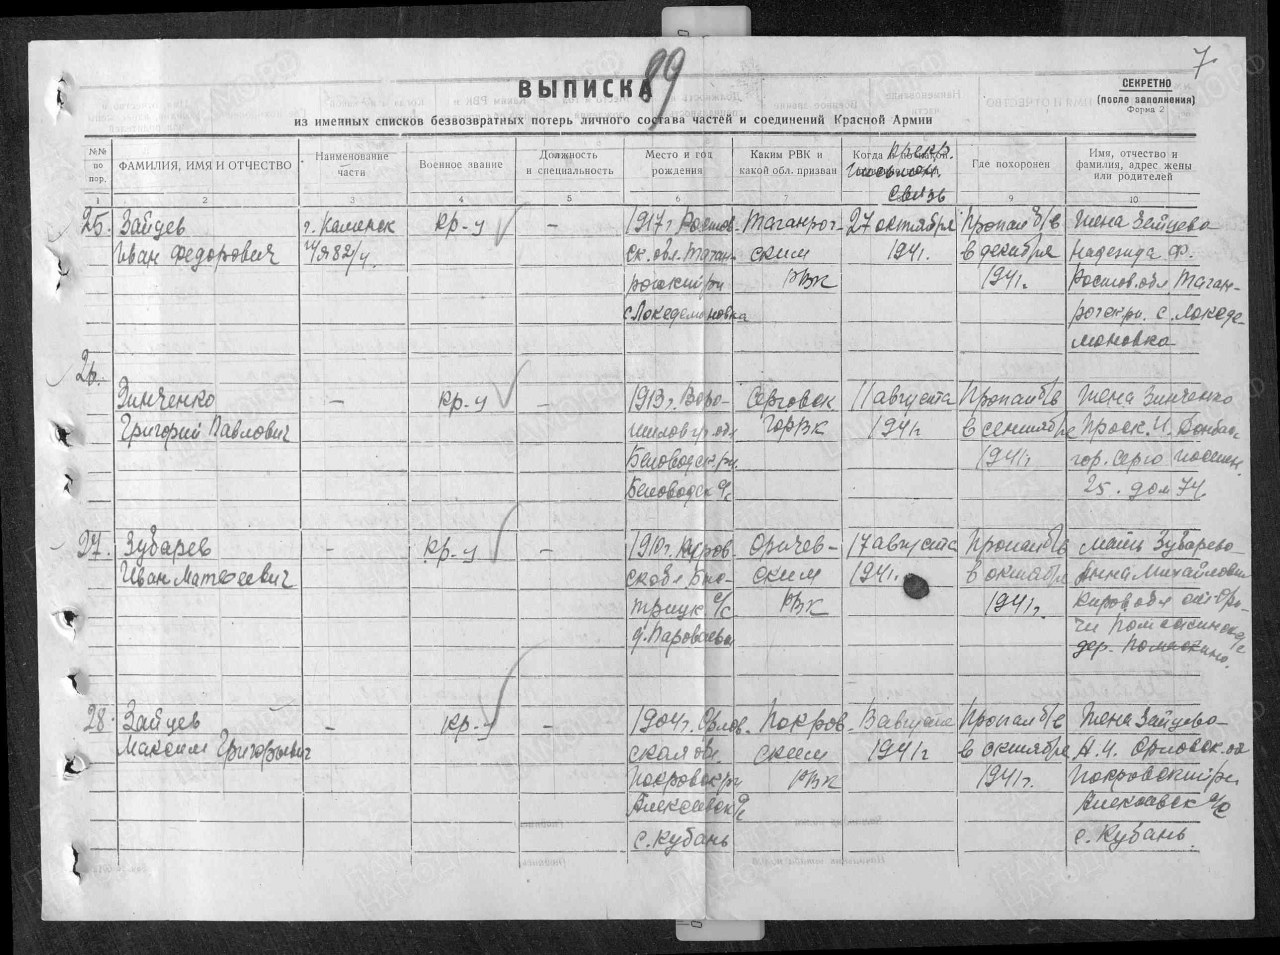 89
7
ВЫПИСКА
СЕКРЕТНО
(после заполнения)
Форма 2
из именных списков безвозвратных потерь личного состава частей и соединений Красной Армии
№№ по пор.
ФАМИЛИЯ, ИМЯ И ОТЧЕСТВО
Наименование части
Военное звание
Должность и специальность
Место и год рождения
Каким РВК и какой обл. призван
Когда и по какой
прекр.
письмен.
связь
Где похоронен
Имя, отчество и фамилия, адрес жены или родителей
1 2 3 4 5 6 7 9 10
25. Зайцев г. Каменск кр-ц – 1917 г. Ростов- Таганрог- 27 октября Пропал б/в Жена Зайцева
Иван Федорович п/я 82/4. ск. обл. Таган- ским 1941. в декабре Надежда Ф.
рогский рн РВК 1941. Ростов. обл Таган-
с Локедемоновка рог. с. Локеде-
моновка
26.
Зинченко – кр-ц – 1913 г. Воро- Серговск 11 августа Пропал б/в Жена Зинченко
Григорий Павлович шиловгр. обл ГорВК 1941 в сентябре П. И. Донбас
Беловодск. рн. 1941 гор. Серго
Беловодск с/с 25. дом 74
27. Зубарев – кр-ц – 1910 г. Киров- Оричев- 17 августа Пропал б/в Мать Зубарева
Иван Матвеевич ск обл ским 1941. в октябре Анна Михайловна
с/с РВК 1941. Киров обл
д.
дер.
28. Зайцев – кр-ц – 1904 г. Орлов- Покров- 8 августа Пропал б/в Жена Зайцева
Максим Григорьевич ская обл. ским 1941 в октябре А. И. Орловск. об
Покровск рн РВК 1941 г. Покровский рн
Алексеевск с/с Алексеевск с/с
с. Кубань с. Кубань.